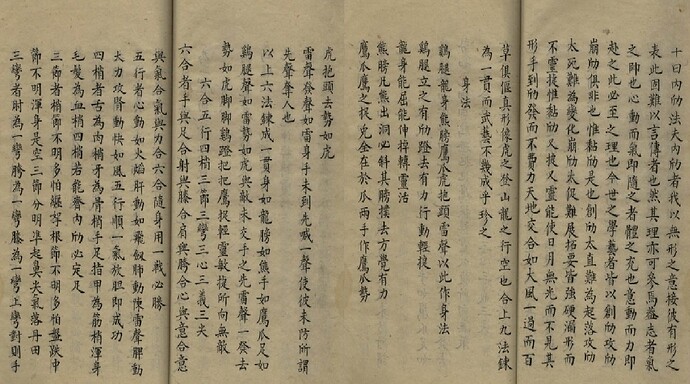 十曰內劲法夫內劲者我以無形之意接彼有形之
表此困難以言傳者也然其理亦可參焉蓋志者氣
之帥也心動而氣即隨之者體之充也意動而力即
赴之此必至之理也今世之學藝者皆以創劲攻劲
崩劲俱非也惟黏劲是也創劲太直難為起落攻劲
太死難為變化崩劲未促難展招要皆強硬漏形而
不靈捷惟黏劲又捷又靈能使日月無光而不見其
形手到劲發而不費力天地交合如大風一過而百
草俱偃真形像虎之登山龍之行空也合上九法鍊
為一貫而武藝不幾成乎珍之
身法
鷄腿龍身熊膀鷹爪虎抱頭雷聲以此作身法
鷄腿立之有劲蹬去有力行動輕捷
龍身能屈能伸撑轉靈活
熊膀凡熊出洞必斜其膀撲去方覺有力
鷹爪鷹之捉兔全在於爪兩手作鷹爪勢
虎抱頭去勢如虎
雷聲發聲如雷身手未到先喊一聲使彼未防所謂
先聲奪人也
以上六法鍊成一貫身如龍膀如熊手如鷹爪足如
鷄腿聲如雷勢如虎與敵未交手之先雷聲一發去
勢如虎脚脚鷄蹬把把鷹捉輕靈敏捷所向無敵
六合五行四梢三節三彎三心三義三尖
六合者手與足合肘與膝合肩與胯合心與意合意
與氣合氣與力合六合隨身用一戰必勝
五行者心動如火焰肝動如飛劍肺動陳雷聲脾動
大力攻腎動快如風五行順一氣放胆即成功
四梢者舌為肉梢牙為骨梢手足指甲為筋梢渾身
毛髮為血梢四梢若能齊內劲必定足
三節者梢節不明多怕纏拿根節不明多怕盤跌中
節不明渾身是空三節分明準起鼻尖氣落丹田
三彎者肘為一彎胯為一彎膝為一彎三彎對則手